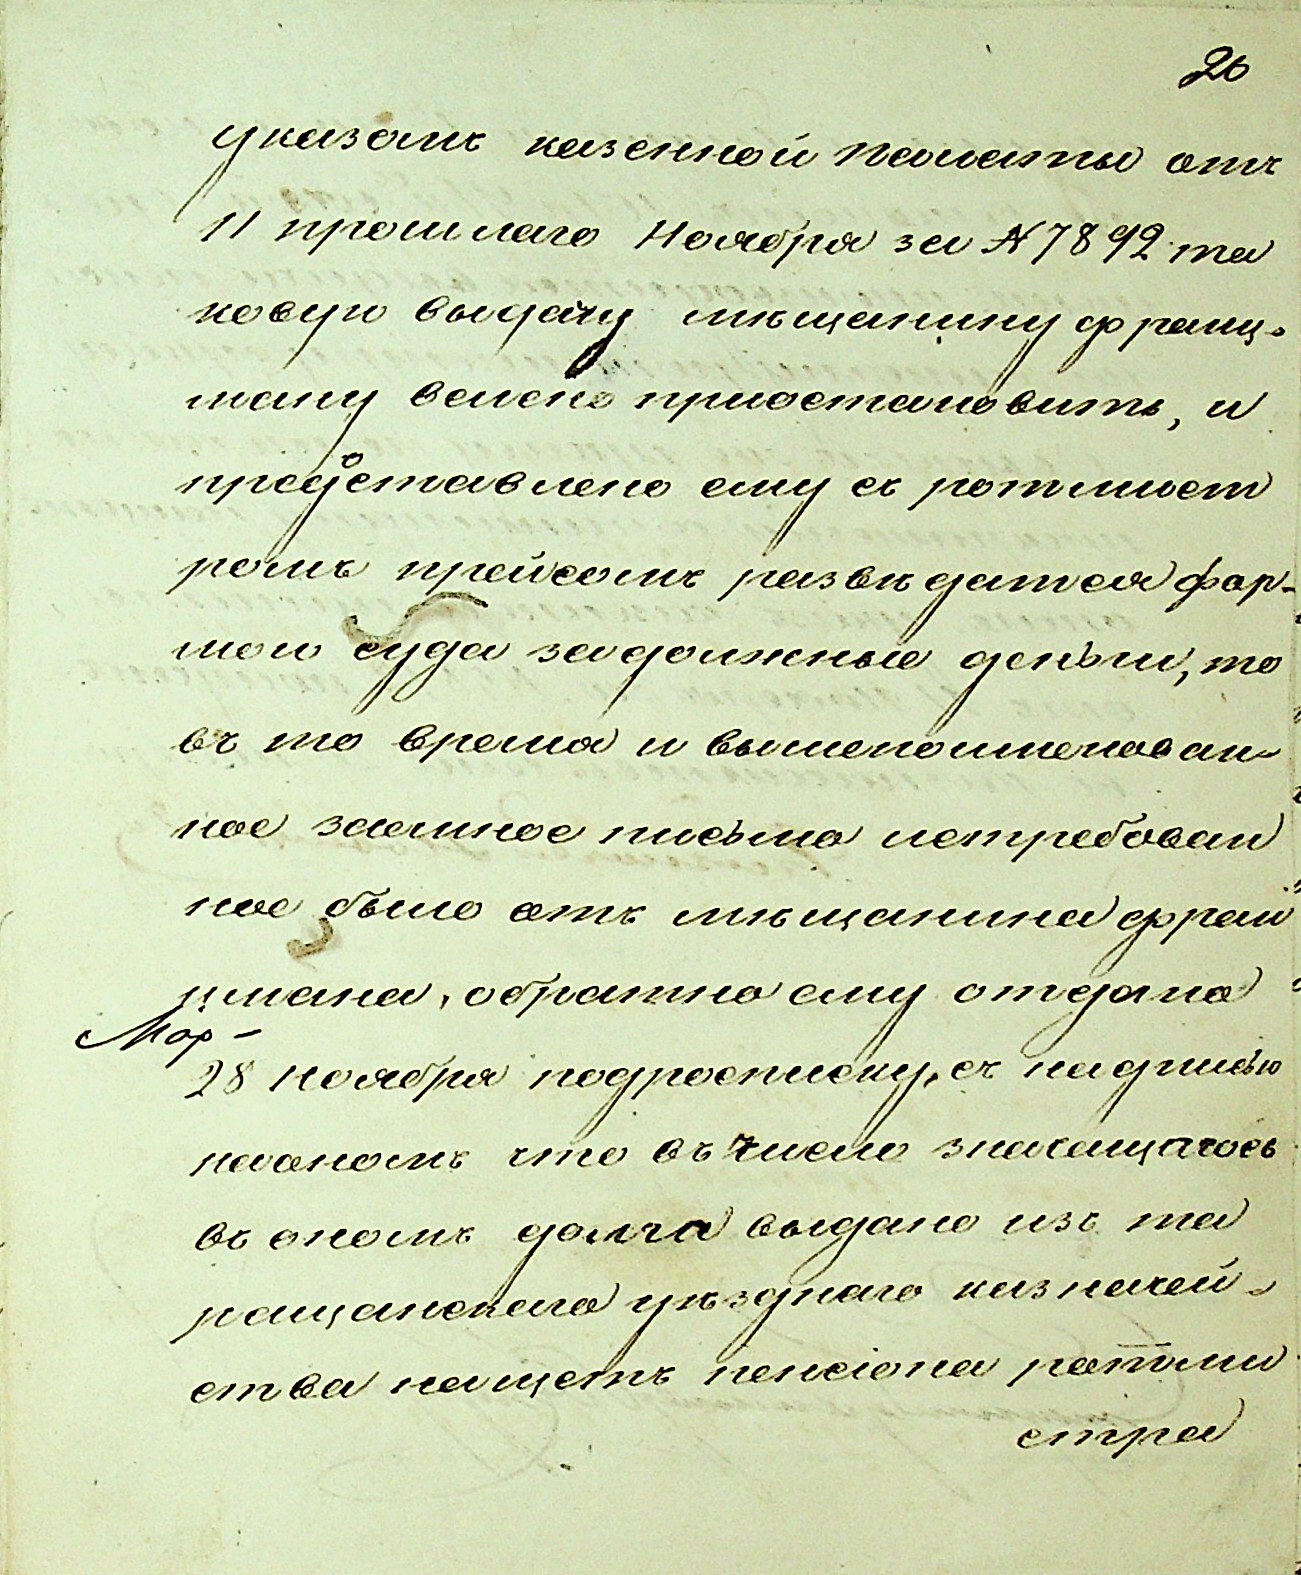 26
указомъ казенной палаты отъ
11 прошлаго Ноября за № 7892 та
ковую выдачу мѣщанину Франц-
ману велено приостановить, и
предоставлено ему съ ротмист
ромъ Прейсомъ разведатся фор-
мою суда задолжные деньги, то
въ то время и вышепоименован-
ное заемное письмо истребован
ное было отъ мѣщанина Фран
цмана, обратно ему отдано
Мар-
28 Ноября подросписку, съ надписью
наономъ что въ число значащагось
въ ономъ долга выдано изъ та
ращанскаго уѣзднаго казначей-
ства нащетъ пенсiона ротми
стра